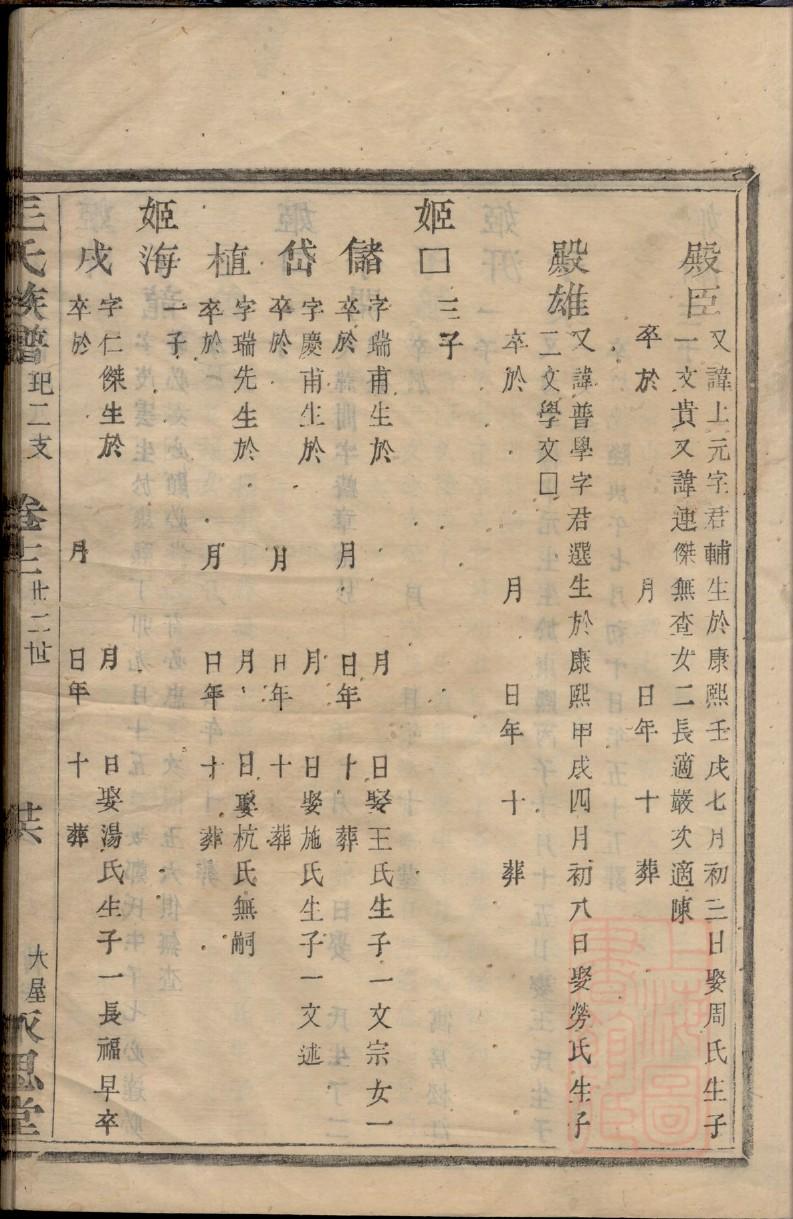 殿臣
又諱上元字君輔生於康熙壬戌七月初三日娶周氏生子
一文貴又諱連傑無查女二長適嚴次適陳
卒於 月 日年 十 葬
殿雄
又諱普學字君選生於康熙甲戌四月初八日娶勞氏生子
二文學文□
卒於 月 日年 十 葬
姬□ 三子
儲
字瑞甫生於 月 日娶王氏生子一文宗女一
卒於 月 日年 十 葬
岱
字慶甫生於 月 日娶施氏生子一文述
卒於 月 日年 十 葬
植
字瑞先生於 月 日娶杭氏無嗣
卒於 月 日年 十 葬
姬海 一子
戌
字仁傑生於 月 日娶湯氏生子一長福早卒
卒於 月 日年 十 葬
王氏族譜 玘二支 卷十三 廿二世 大屋 思堂
上海圖書館藏